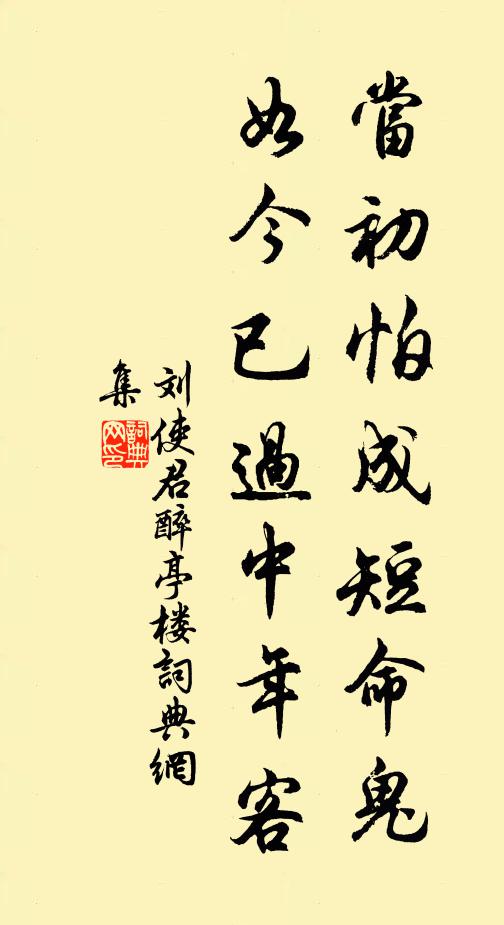 當初怕成短命鬼
如今已過中年客
刘使君醉亭楼詞典網
集
詞典網印